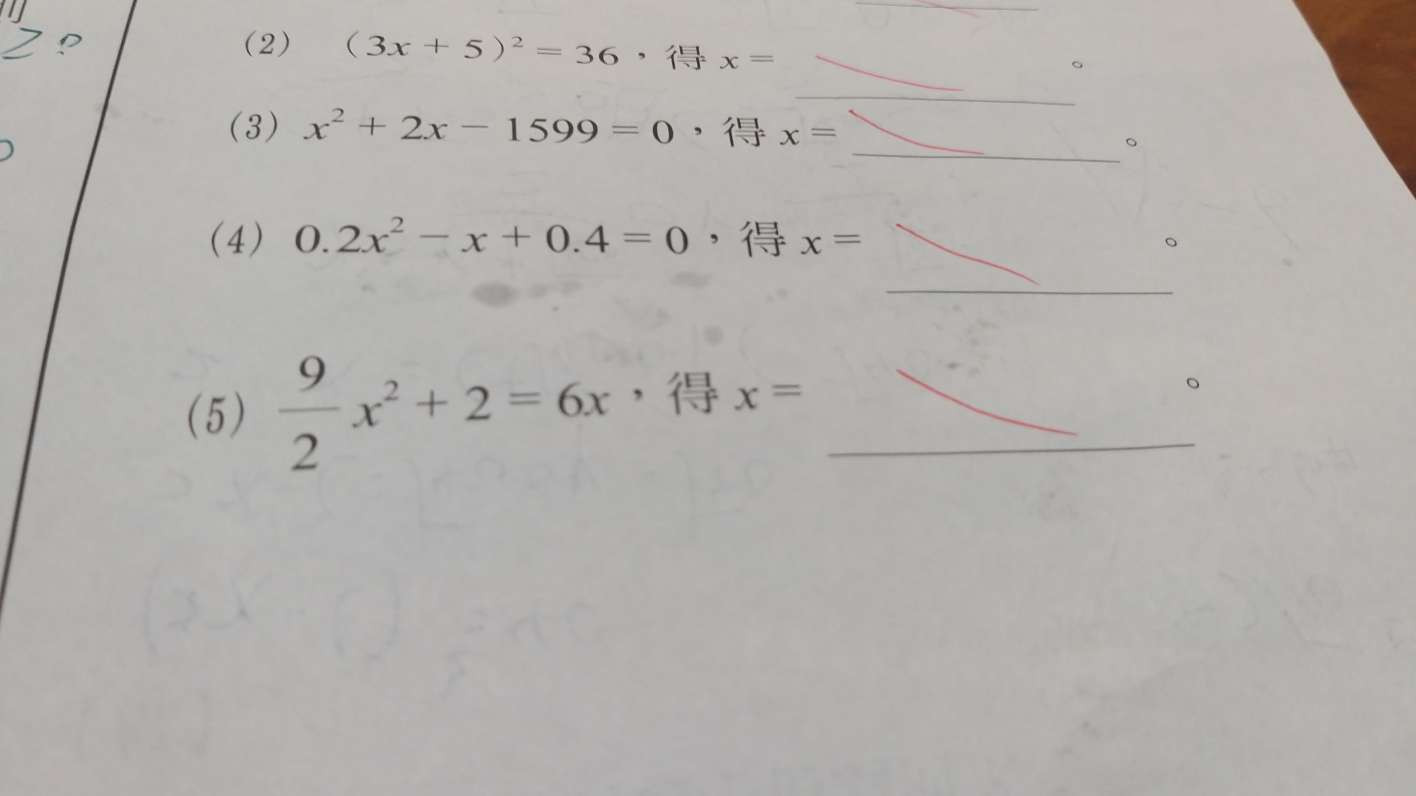 (2) (3x + 5)² = 36，得 x = 。
(3) x² + 2x − 1599 = 0，得 x = 。
(4) 0.2x² − x + 0.4 = 0，得 x = 。
(5) 9/2 x² + 2 = 6x，得 x = 。